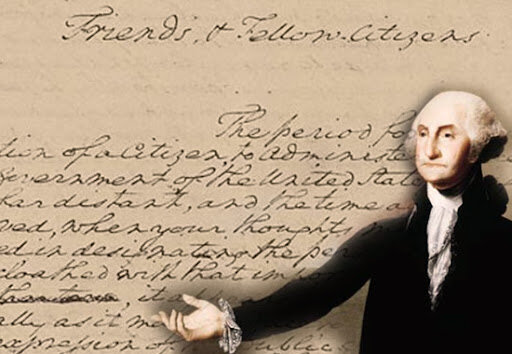 Friends, & Fellow-Citizens
The period fo
tion of a Citizen, to administe
vernment of the United Stat
har distant, and the time a
ved, when your thoughts m
ed in designating the per
cloathed with that impor
it app
ally as it ma
expression of publics